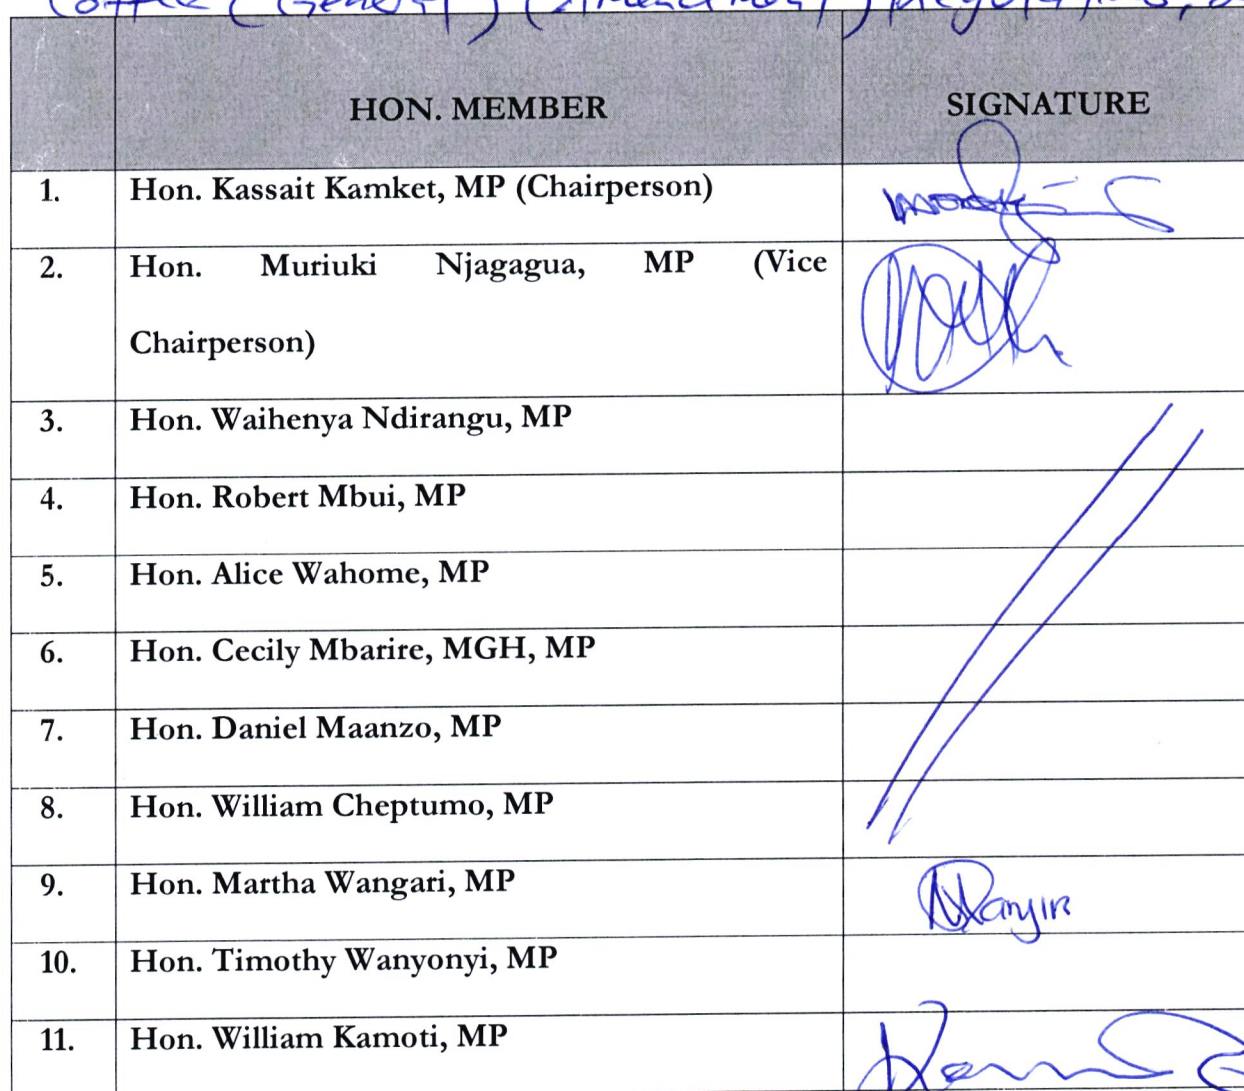 Coffee (General) (Amendment) Regulations,
HON. MEMBER
SIGNATURE
1. Hon. Kassait Kamket, MP (Chairperson)
2. Hon. Muriuki Njagagua, MP (Vice
Chairperson)
3. Hon. Waihenya Ndirangu, MP
4. Hon. Robert Mbui, MP
5. Hon. Alice Wahome, MP
6. Hon. Cecily Mbarire, MGH, MP
7. Hon. Daniel Maanzo, MP
8. Hon. William Cheptumo, MP
9. Hon. Martha Wangari, MP
10. Hon. Timothy Wanyonyi, MP
11. Hon. William Kamoti, MP